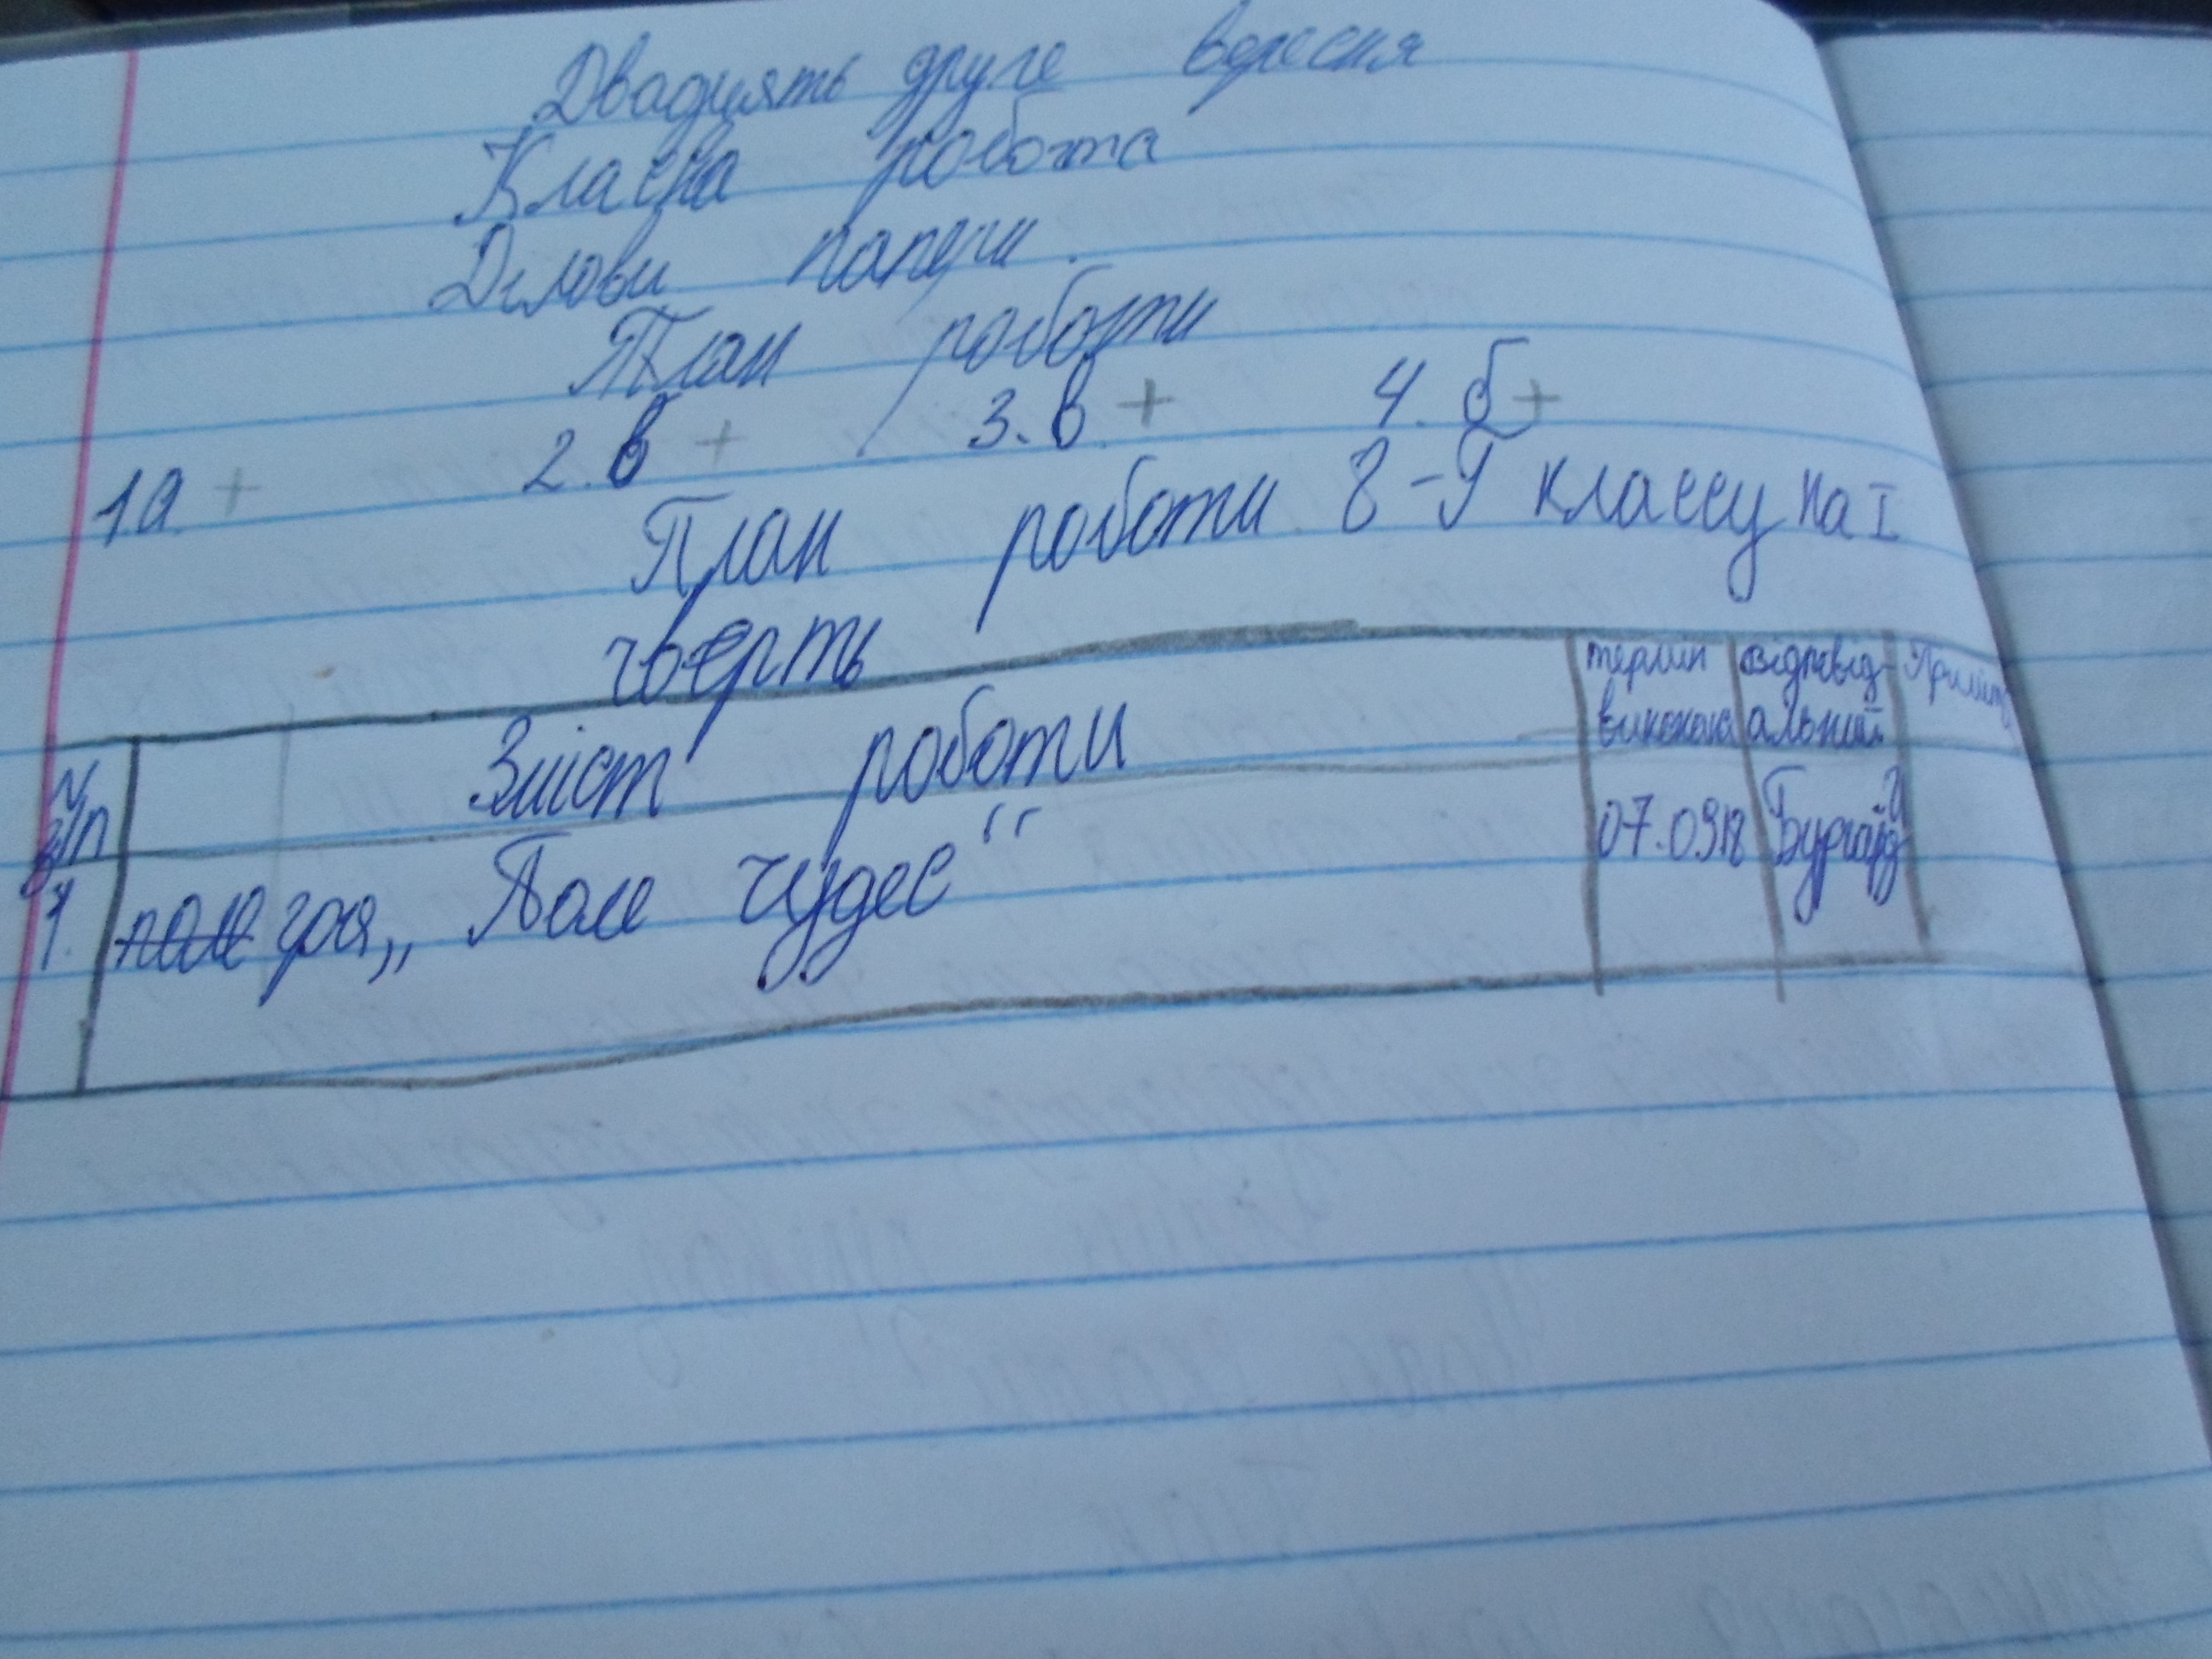 Двадцять друге вересня
Класна робота
Ділові папери.
План роботи
1а + 2. в + 3. в + 4. б +
План роботи 8-Г классу на I
чверть
N з/п Зміст роботи термін виконання відповід- альний Примітка
1. поле гра „Поле чудес“ 07.09.18